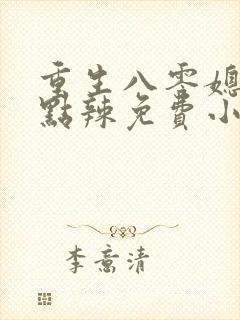 重生八零媳
點辣免費小
李意清